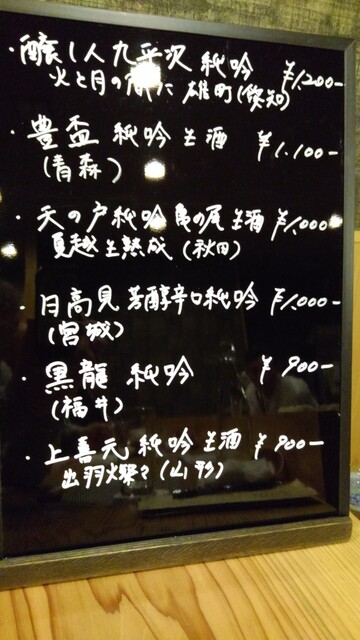 ・醸し人九平次 純吟 ¥1,200-
火と月の間に 雄町(愛知)
・豊盃 純吟 生酒 ¥1,100-
(青森)
・天の戸 純吟 亀の尾 生酒 ¥1,000-
夏越生熟成 (秋田)
・日高見 芳醇辛口純吟 ¥1,000-
(宮城)
・黒龍 純吟 ¥900-
(福井)
・上喜元 純吟 生酒 ¥900-
出羽燦々(山形)